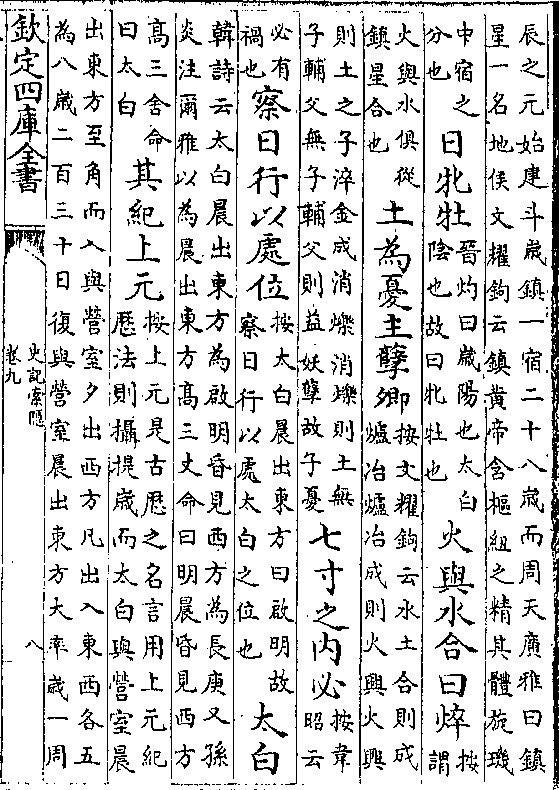 辰之元始建斗歲鎮一宿二十八歲而周天廣雅曰鎮
星一名地侯文耀鉤云鎮黄帝含樞紐之精其體旋璣
中宿之分也曰牝牡晉灼曰歲陽也太白陰也故曰牝牡也火與水合曰焠按謂
火與水俱從鎮星合也土為憂主孽卿按文耀鉤云水土合則成爐冶爐冶成則火興火興
則土之子淬金成消爍消爍則土無子輔父無子輔父則益妖孽故子憂七寸之内必按韋昭云
必有禍也察日行以處位按太白晨出東方曰啟明故察日行以處太白之位也太白
韓詩云太白晨出東方為啟明昏見西方為長庚又孫
炎注爾雅以為晨出東方髙三丈命曰明晨昏見西方
髙三舍命曰太白其紀上元按上元是古厯之名言用上元紀厯法則攝提歲而太白與營室晨
出東方至角而入與營室夕出西方凡出入東西各五
為八歲二百三十日復與營室晨出東方大率歲一周
欽定四庫全書
史記索隱
卷九
八